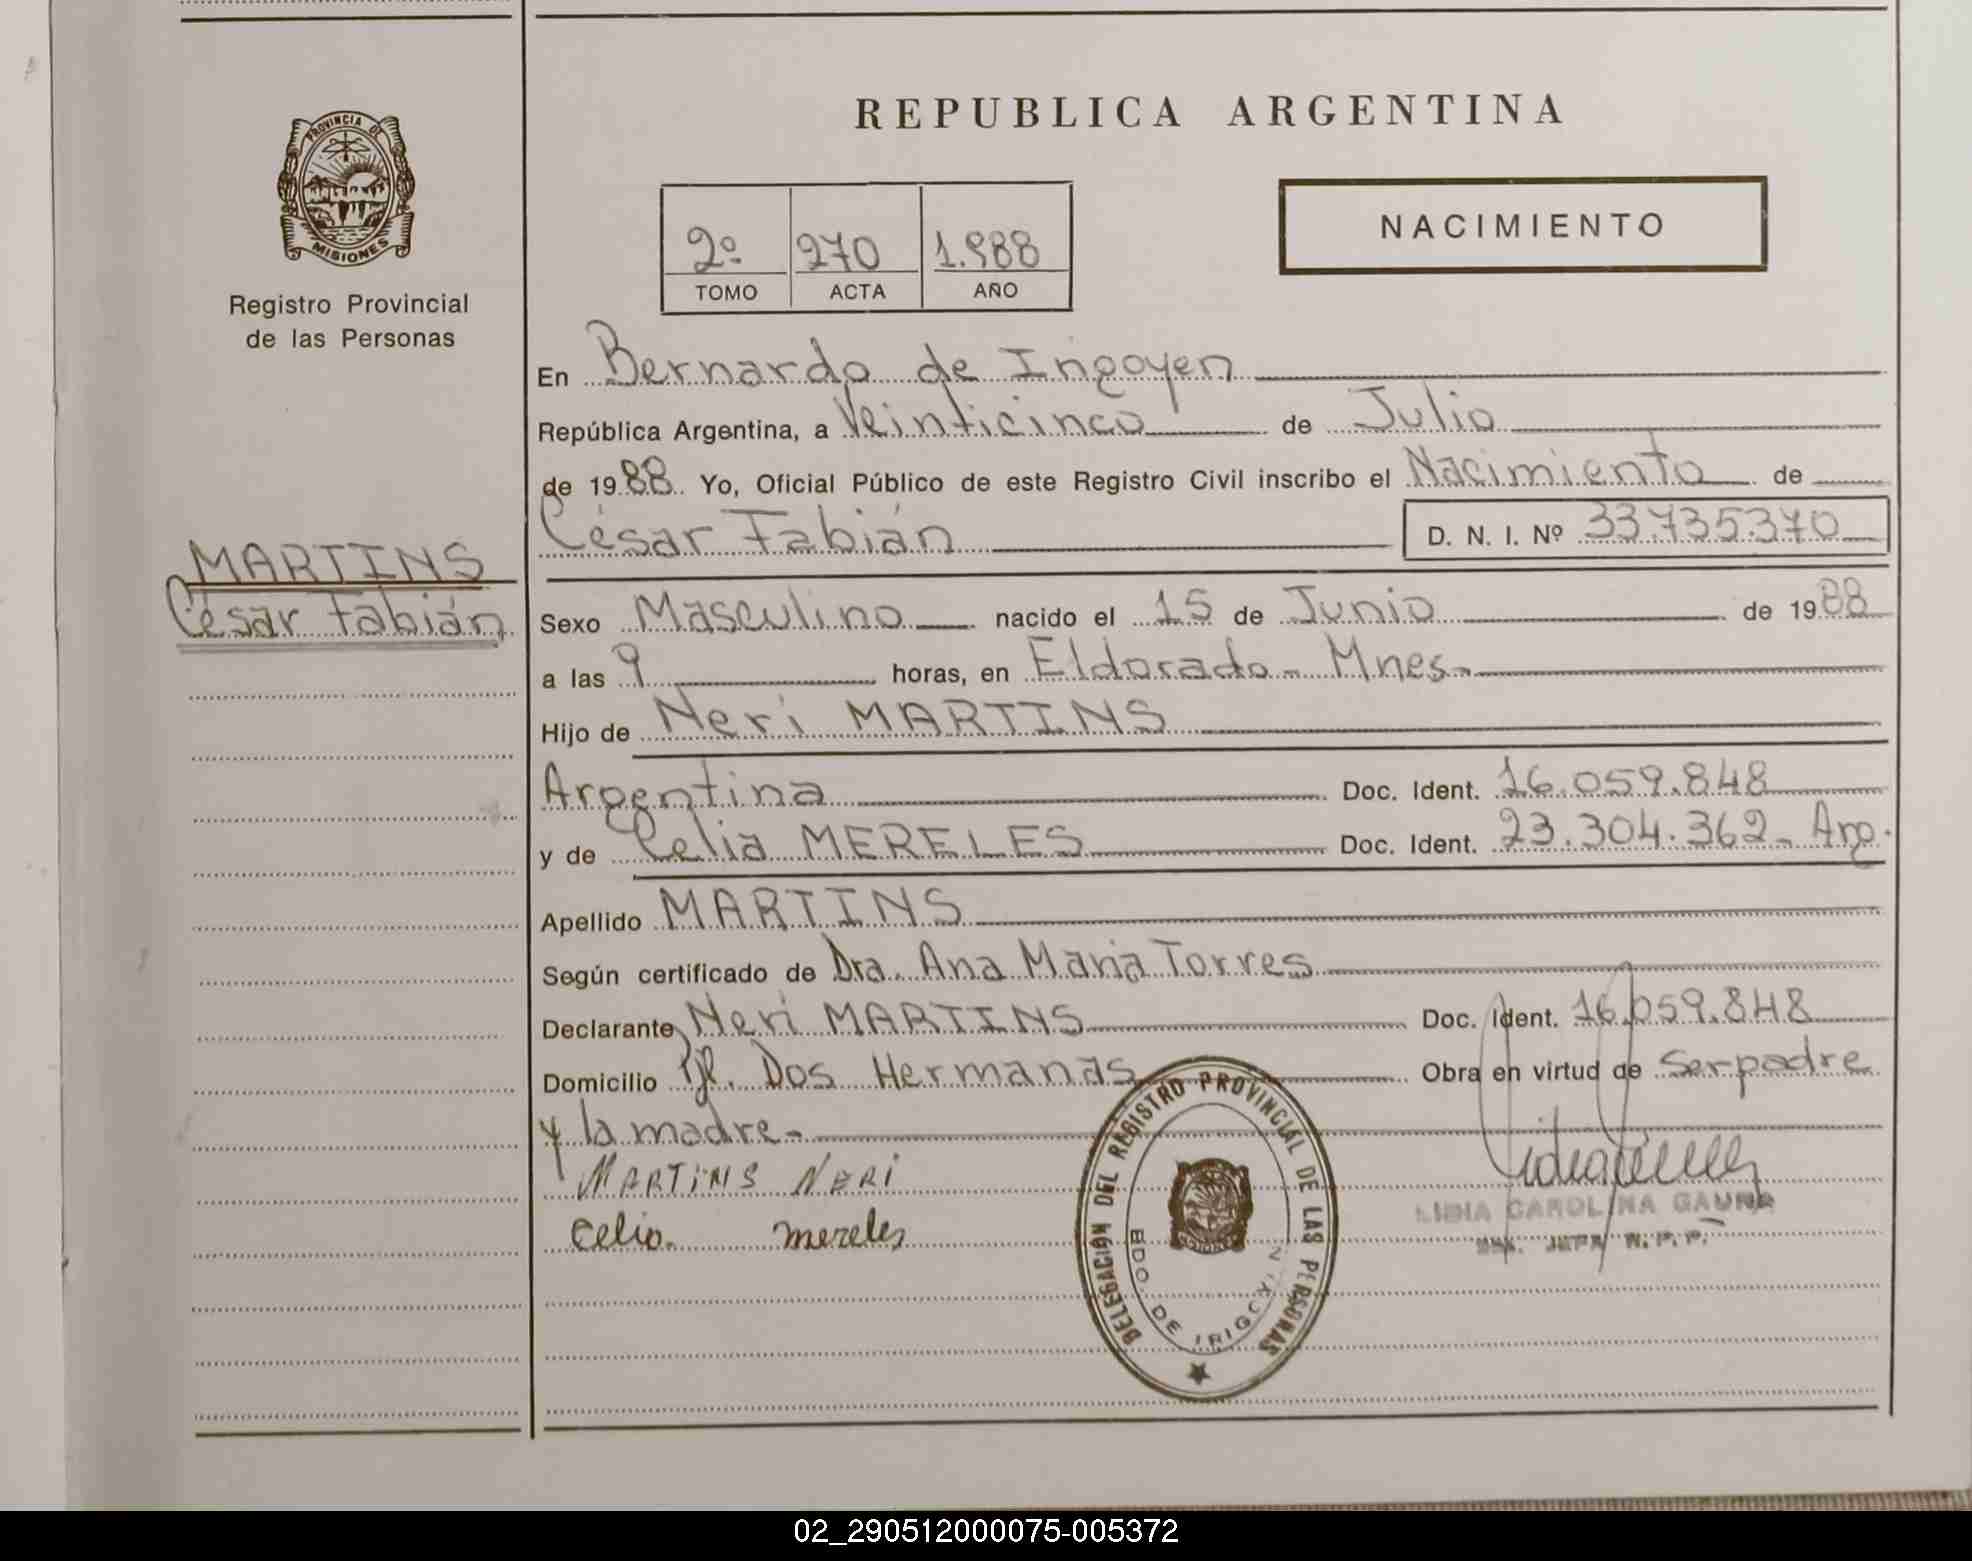 REPUBLICA ARGENTINA
PROVINCIA DE
MISIONES
Registro Provincial
de las Personas
2º 270 1.988
TOMO ACTA AÑO
NACIMIENTO
En Bernardo de Irigoyen
República Argentina, a Veinticinco de Julio
de 1988 Yo, Oficial Público de este Registro Civil inscribo el Nacimiento de
César Fabián D. N. I. Nº 33.735.370
MARTINS
César Fabián
Sexo Masculino nacido el 15 de Junio de 1988
a las 9 horas, en Eldorado - Mnes.
Hijo de Neri MARTINS
Argentina Doc. Ident. 16.059.848
y de Celia MERELES Doc. Ident. 23.304.362 - Arg.
Apellido MARTINS
Según certificado de Dra. Ana Maria Torres
Declarante Neri MARTINS Doc. Ident. 16.059.848
Domicilio Dos Hermanas Obra en virtud de ser padre
y la madre -
MARTINS NERI
Celia mereles
DELEGACION DEL REGISTRO PROVINCIAL DE LAS PERSONAS
BDO. DE IRIGOYEN
LIDIA CAROLINA GAUNA
JEFA R.P.P.
02_290512000075-005372